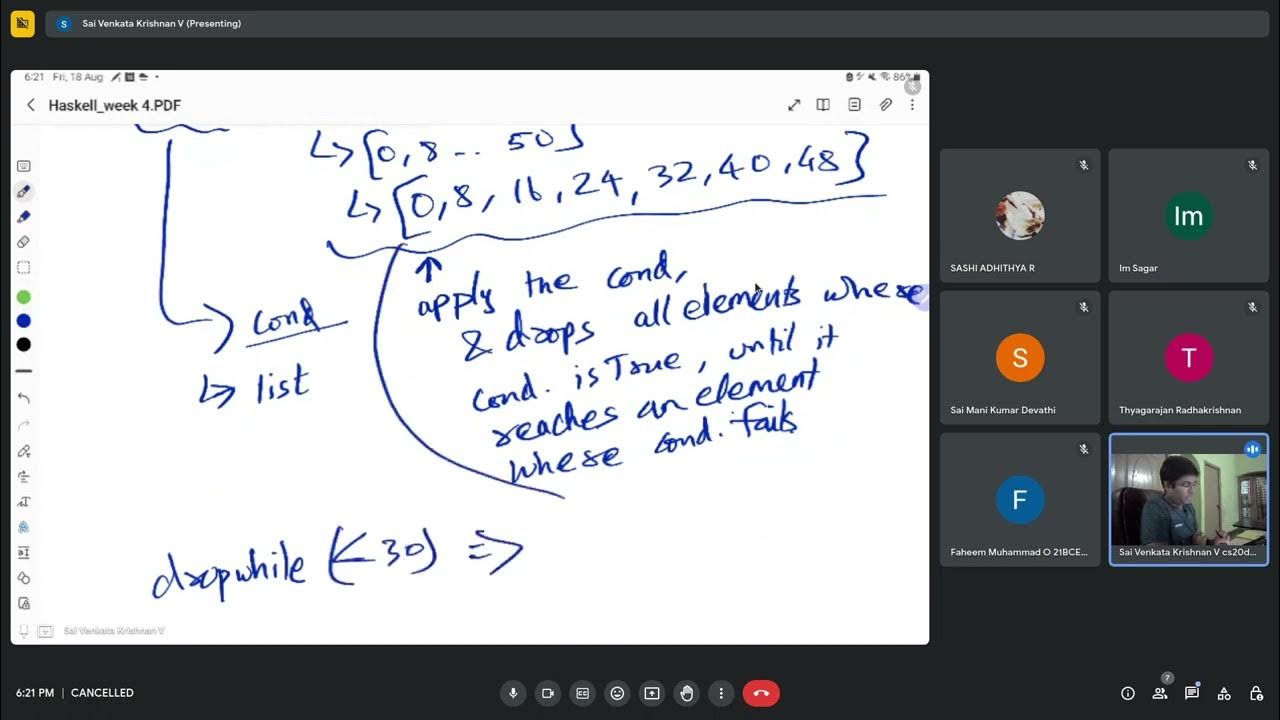 S
Sai Venkata Krishnan V (Presenting)
6:21 Fri, 18 Aug
86%
Haskell_week 4.PDF
↳ [0, 8 .. 50]
↳ [0, 8, 16, 24, 32, 40, 48]
↑
apply the cond,
& drops all elements where
cond. is True, until it
reaches an element
where cond. fails
cond
↳ list
dropwhile (<30) =>
Sai Venkata Krishnan V
SASHI ADHITHYA R
Im
Im Sagar
S
Sai Mani Kumar Devathi
T
Thyagarajan Radhakrishnan
F
Faheem Muhammad O 21BCE...
Sai Venkata Krishnan V cs20d...
6:21 PM | CANCELLED
7